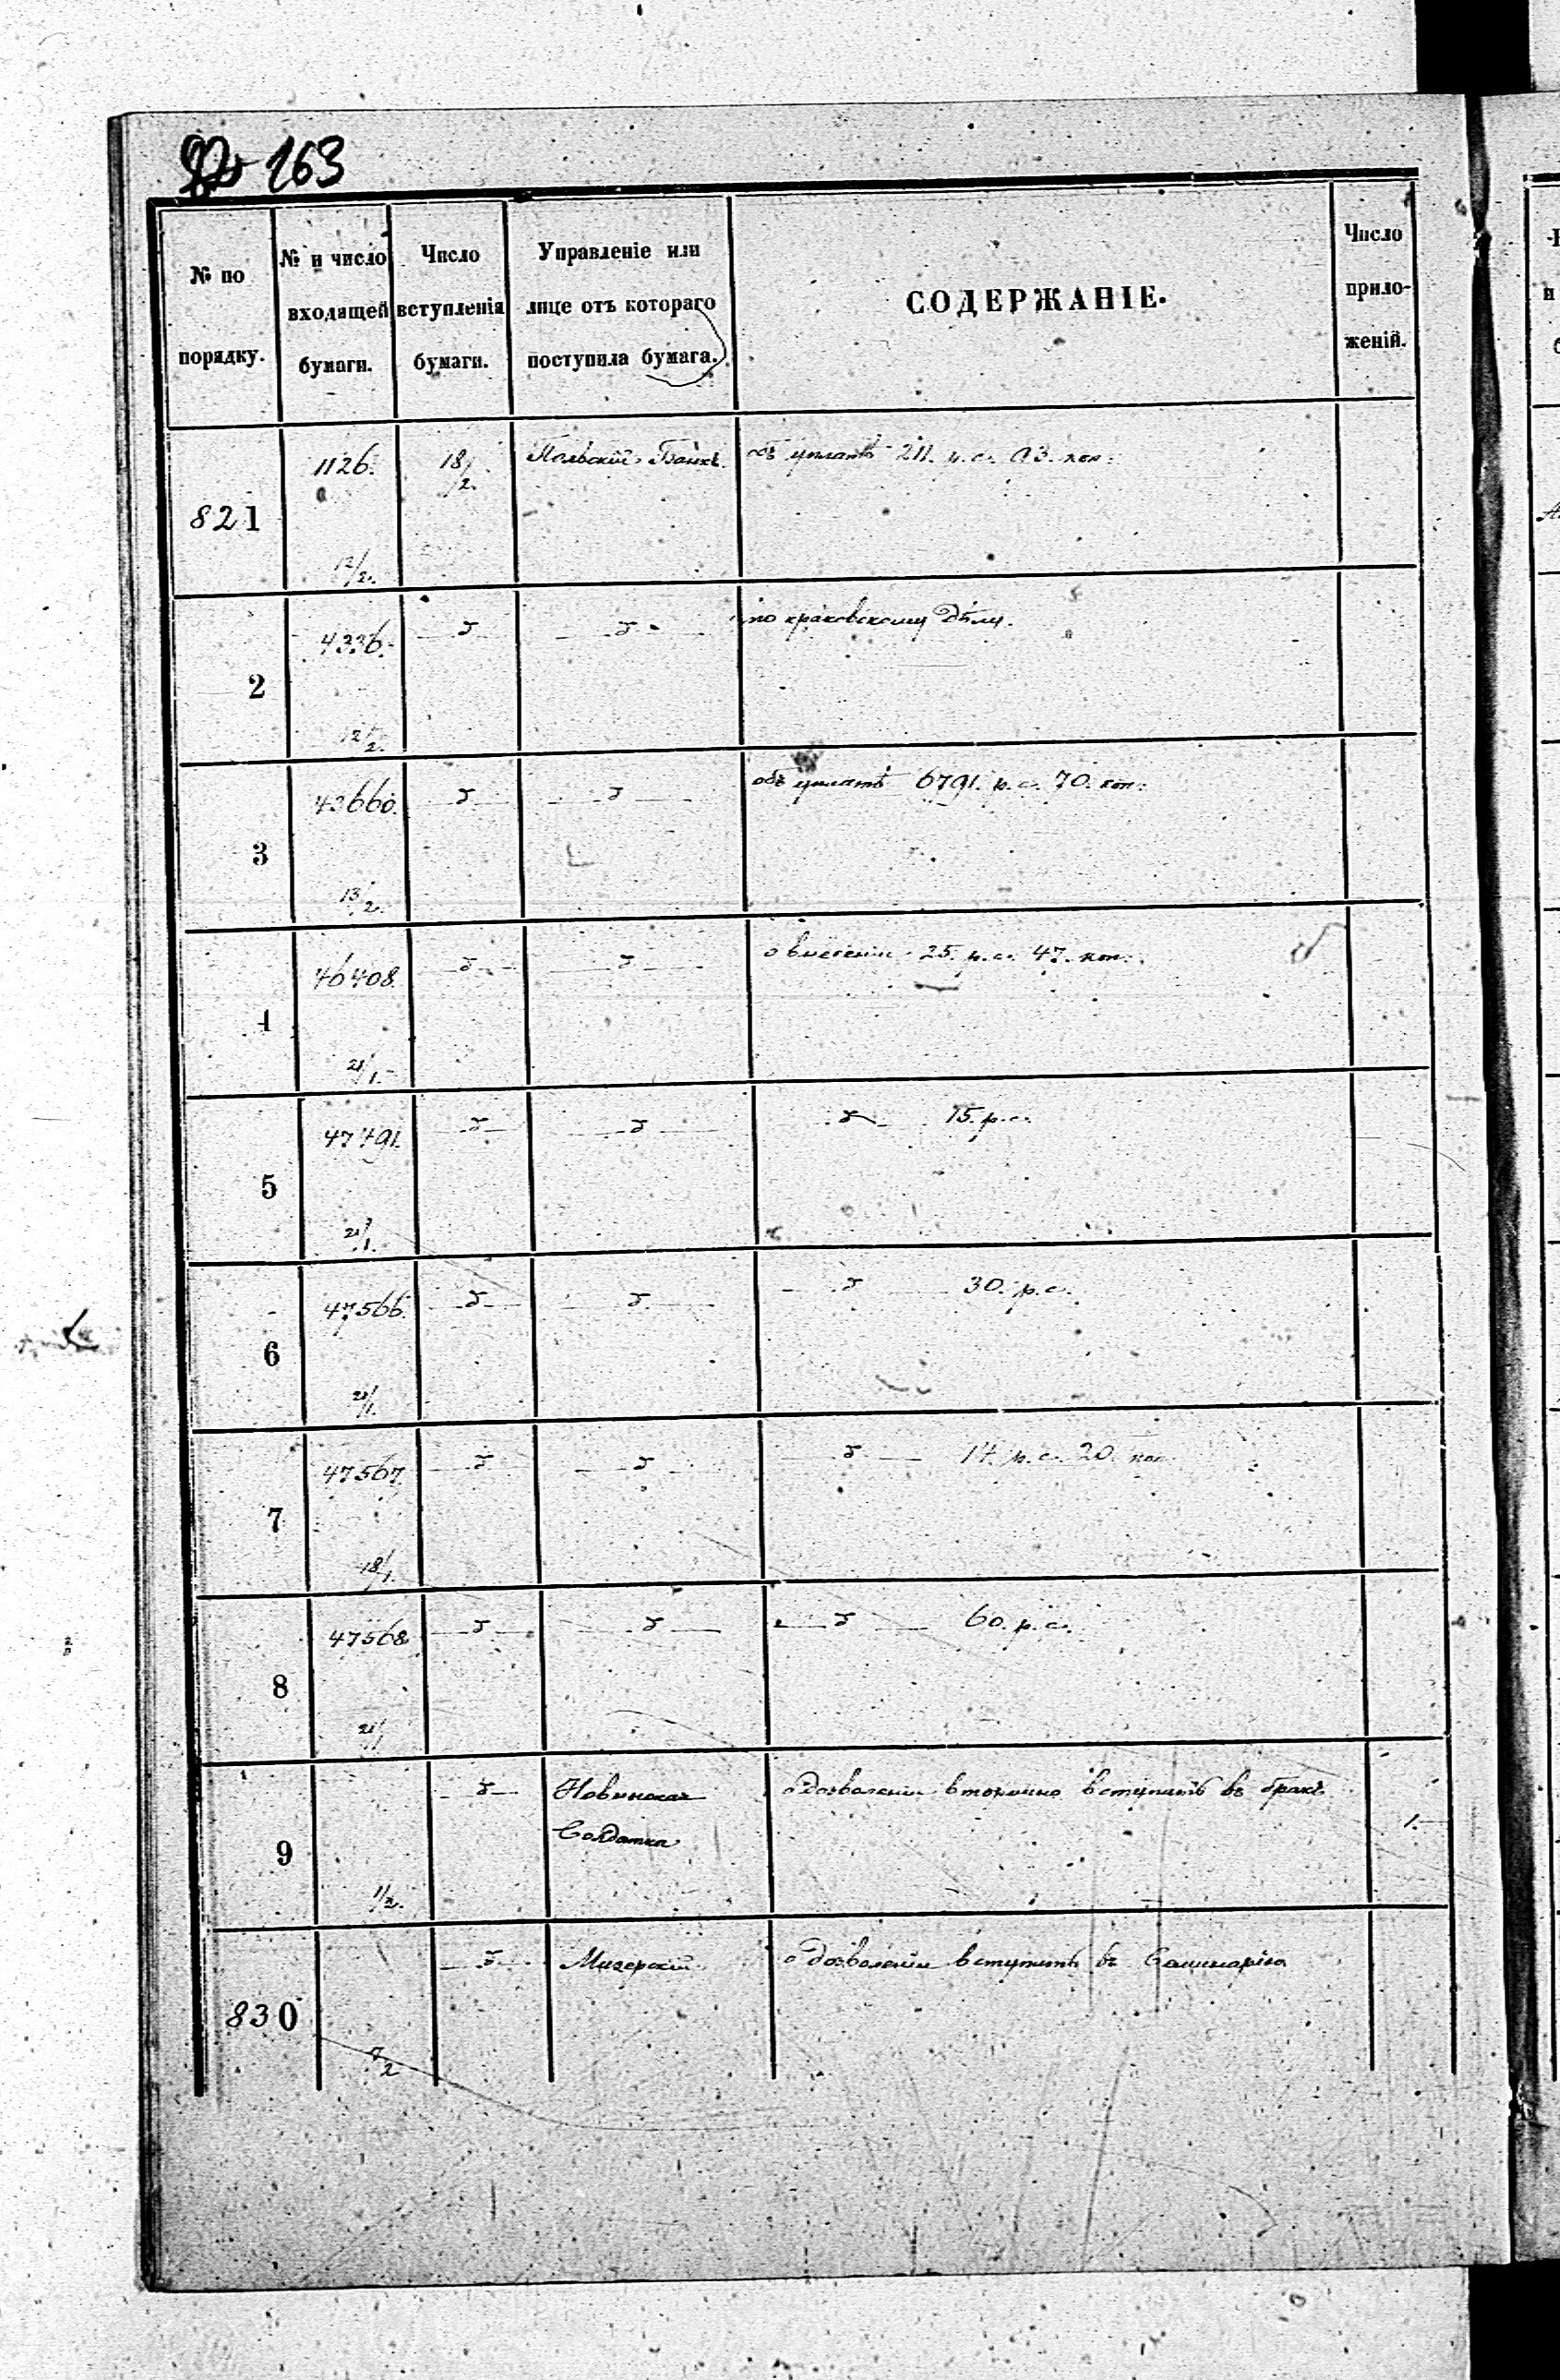 163
№ по порядку.
№ и число входящей бумаги.
Число вступленія бумаги.
Управленіе или лице отъ котораго поступила бумага.
СОДЕРЖАНІЕ.
Число приложеній.
821 1126. 12/2. 18/2. Польскій Банкъ. объ уплатѣ 211. р. с. 93. коп.
2 4336. 12/2. —〃— —〃— по краковскому дѣлу.
3 43660. 13/2. —〃— —〃— объ уплатѣ 6791. р. с. 70. коп.
4 46408. 21/1. —〃— —〃— о внесеніи 25. р. с. 47. коп.
5 47491. 21/1. —〃— —〃— —〃— 15. р. с.
6 47566. 21/1. —〃— —〃— —〃— 30. р. с.
7 47567. 18/1. —〃— —〃— —〃— 14. р. с. 20. коп.
8 47568. 21/1. —〃— —〃— —〃— 60. р. с.
9 1/2. —〃— Новинская Солдатка о дозволеніи вторично вступить въ бракъ 1.
830 7/2 —〃— Мизерскій о дозволеніи вступить въ